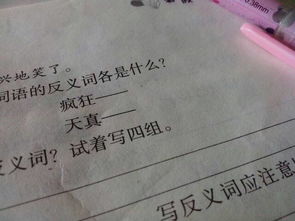 兴地笑了。
词语的反义词各是什么?
疯狂——
天真——
反义词?试着写四组。
写反义词应注意
0.38mm